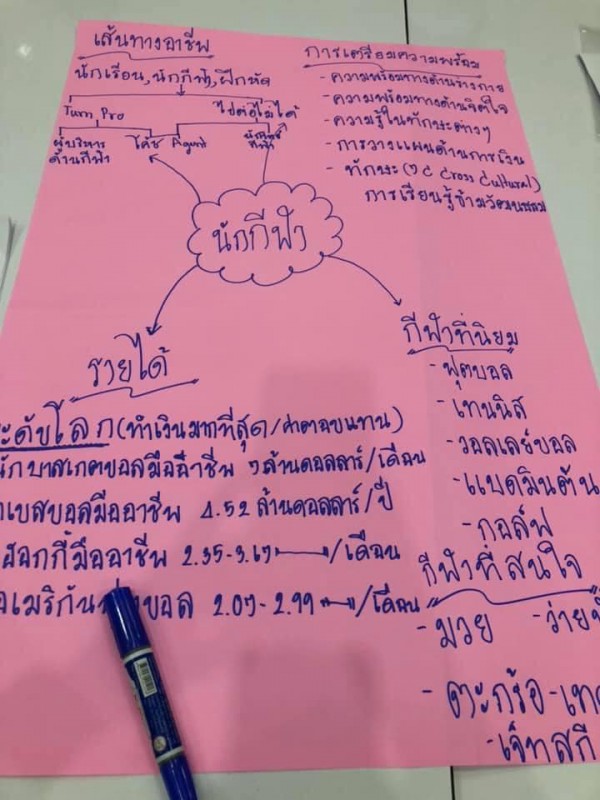 เส้นทางอาชีพ
นักเรียน, นักกีฬา, ฝึกหัด
Turn, Pro
ไปต่อไม่ได้
ผู้บริหาร
ด้านกีฬา
โค้ช
Agent
การเตรียมความพร้อม
- ความพร้อมทางด้านร่างกาย
- ความพร้อมทางด้านจิตใจ
- ความรู้ในทักษะต่างๆ
- การวางแผนด้านการเงิน
- ทักษะ Cross Cultural)
การเรียนรู้ข้ามวัฒนธรรม
นักกีฬา
รายได้
ะดับโลก (ทำเงินมากที่สุด/ค่าตอบแทน)
นักบาสเกตบอลมืออาชีพ ล้านดอลลาร์/เดือน
เบสบอลมืออาชีพ 4.52 ล้านดอลลาร์/ปี
ฮอกกี้มืออาชีพ 2.35- /เดือน
อเมริกัน บอล 2.99 /เดือน
กีฬาที่นิยม
- ฟุตบอล
- เทนนิส
- วอลเลย์บอล
- แบดมินตัน
- กอล์ฟ
กีฬาที่สนใจ
- มวย - ว่ายน้
- ตะกร้อ - เท
- เจ็ทสกี